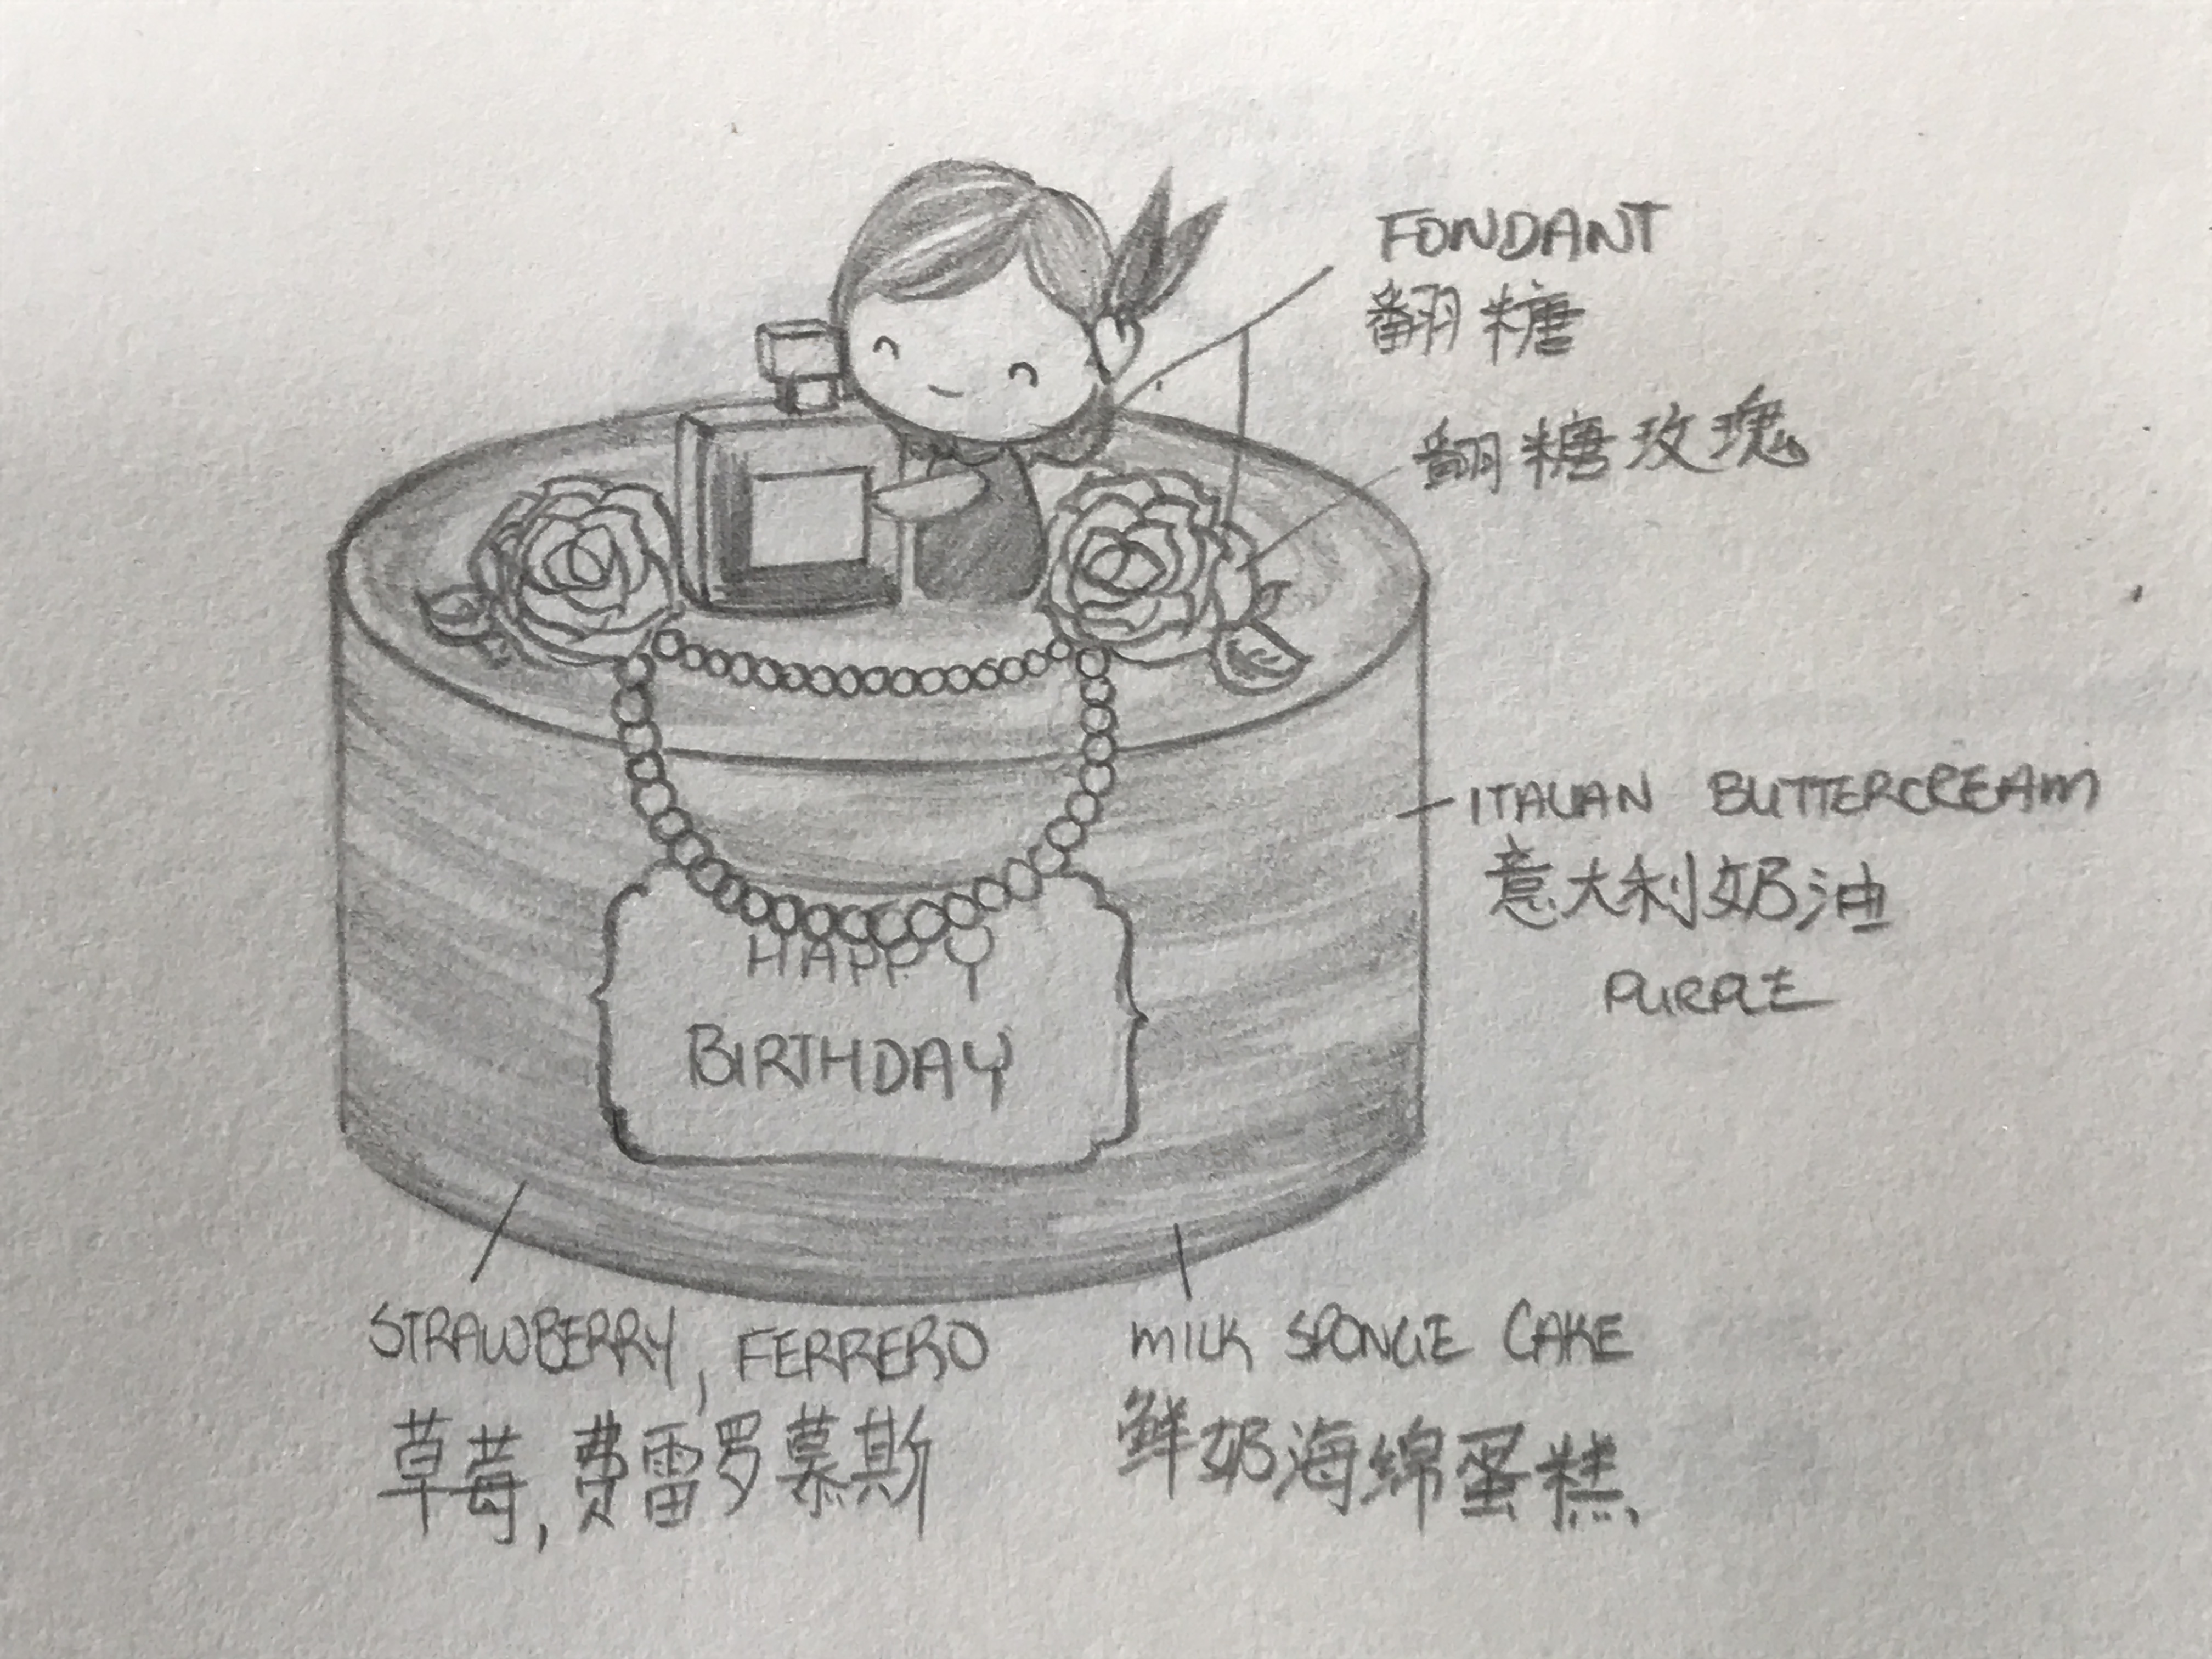 FONDANT
翻糖
翻糖玫瑰
ITALIAN BUTTERCREAM
意大利奶油
PURPLE
HAPPY
BIRTHDAY
STRAWBERRY, FERRERO
草莓,费雷罗慕斯
MILK SPONGE CAKE
鲜奶海绵蛋糕.